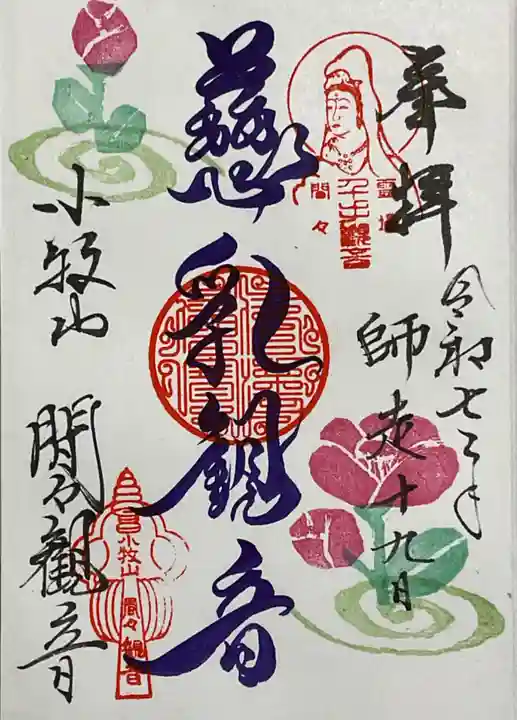 奉拝
令和七乙巳年
師走十九日
慈乳観音
小牧山
間々観音
霊場
間々
乳観音
小牧山
間々観音